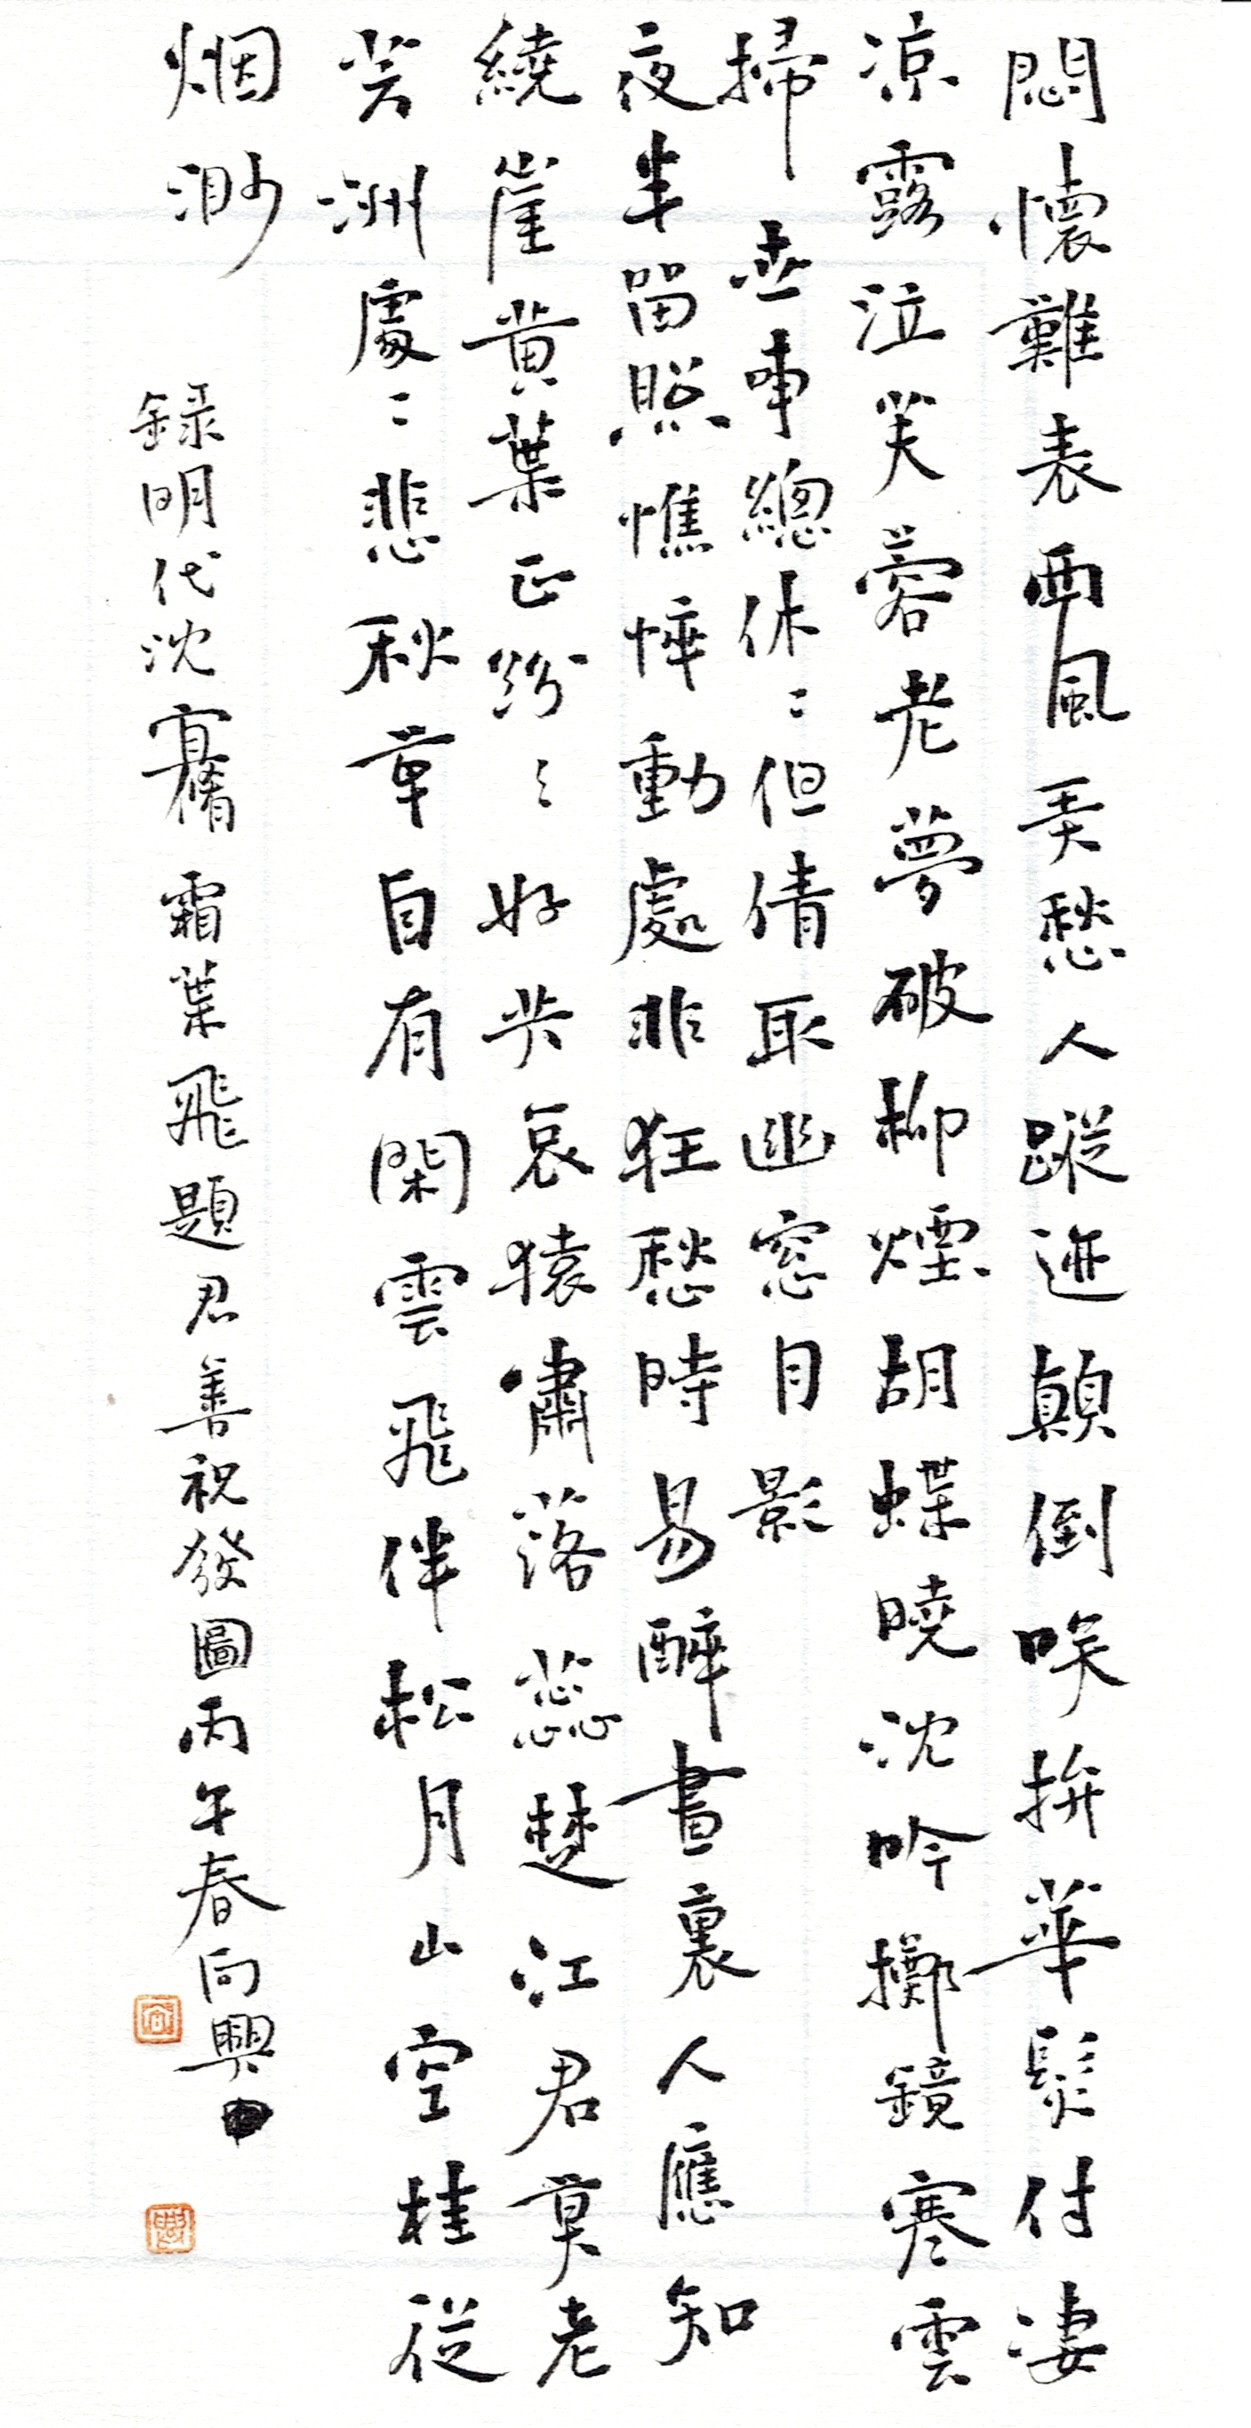 悶懷難表西風愁人蹤迹顛倒唉拚華髮付凄
凉露泣芙蓉老夢破柳煙胡蝶曉沈吟擲鏡寒雲
掃 世事總休〻但倩取幽窓月影
夜半留照憔悴動處非狂愁時易醉畫裏人應知
繞崖黄葉正紛〻好共哀猿嘯落蕊楚江君莫老
芳洲處〻悲秋草自有閑雲飛伴松月山空桂從
烟渺
録明代沈 霜葉飛題君善祝發圖丙午春向興